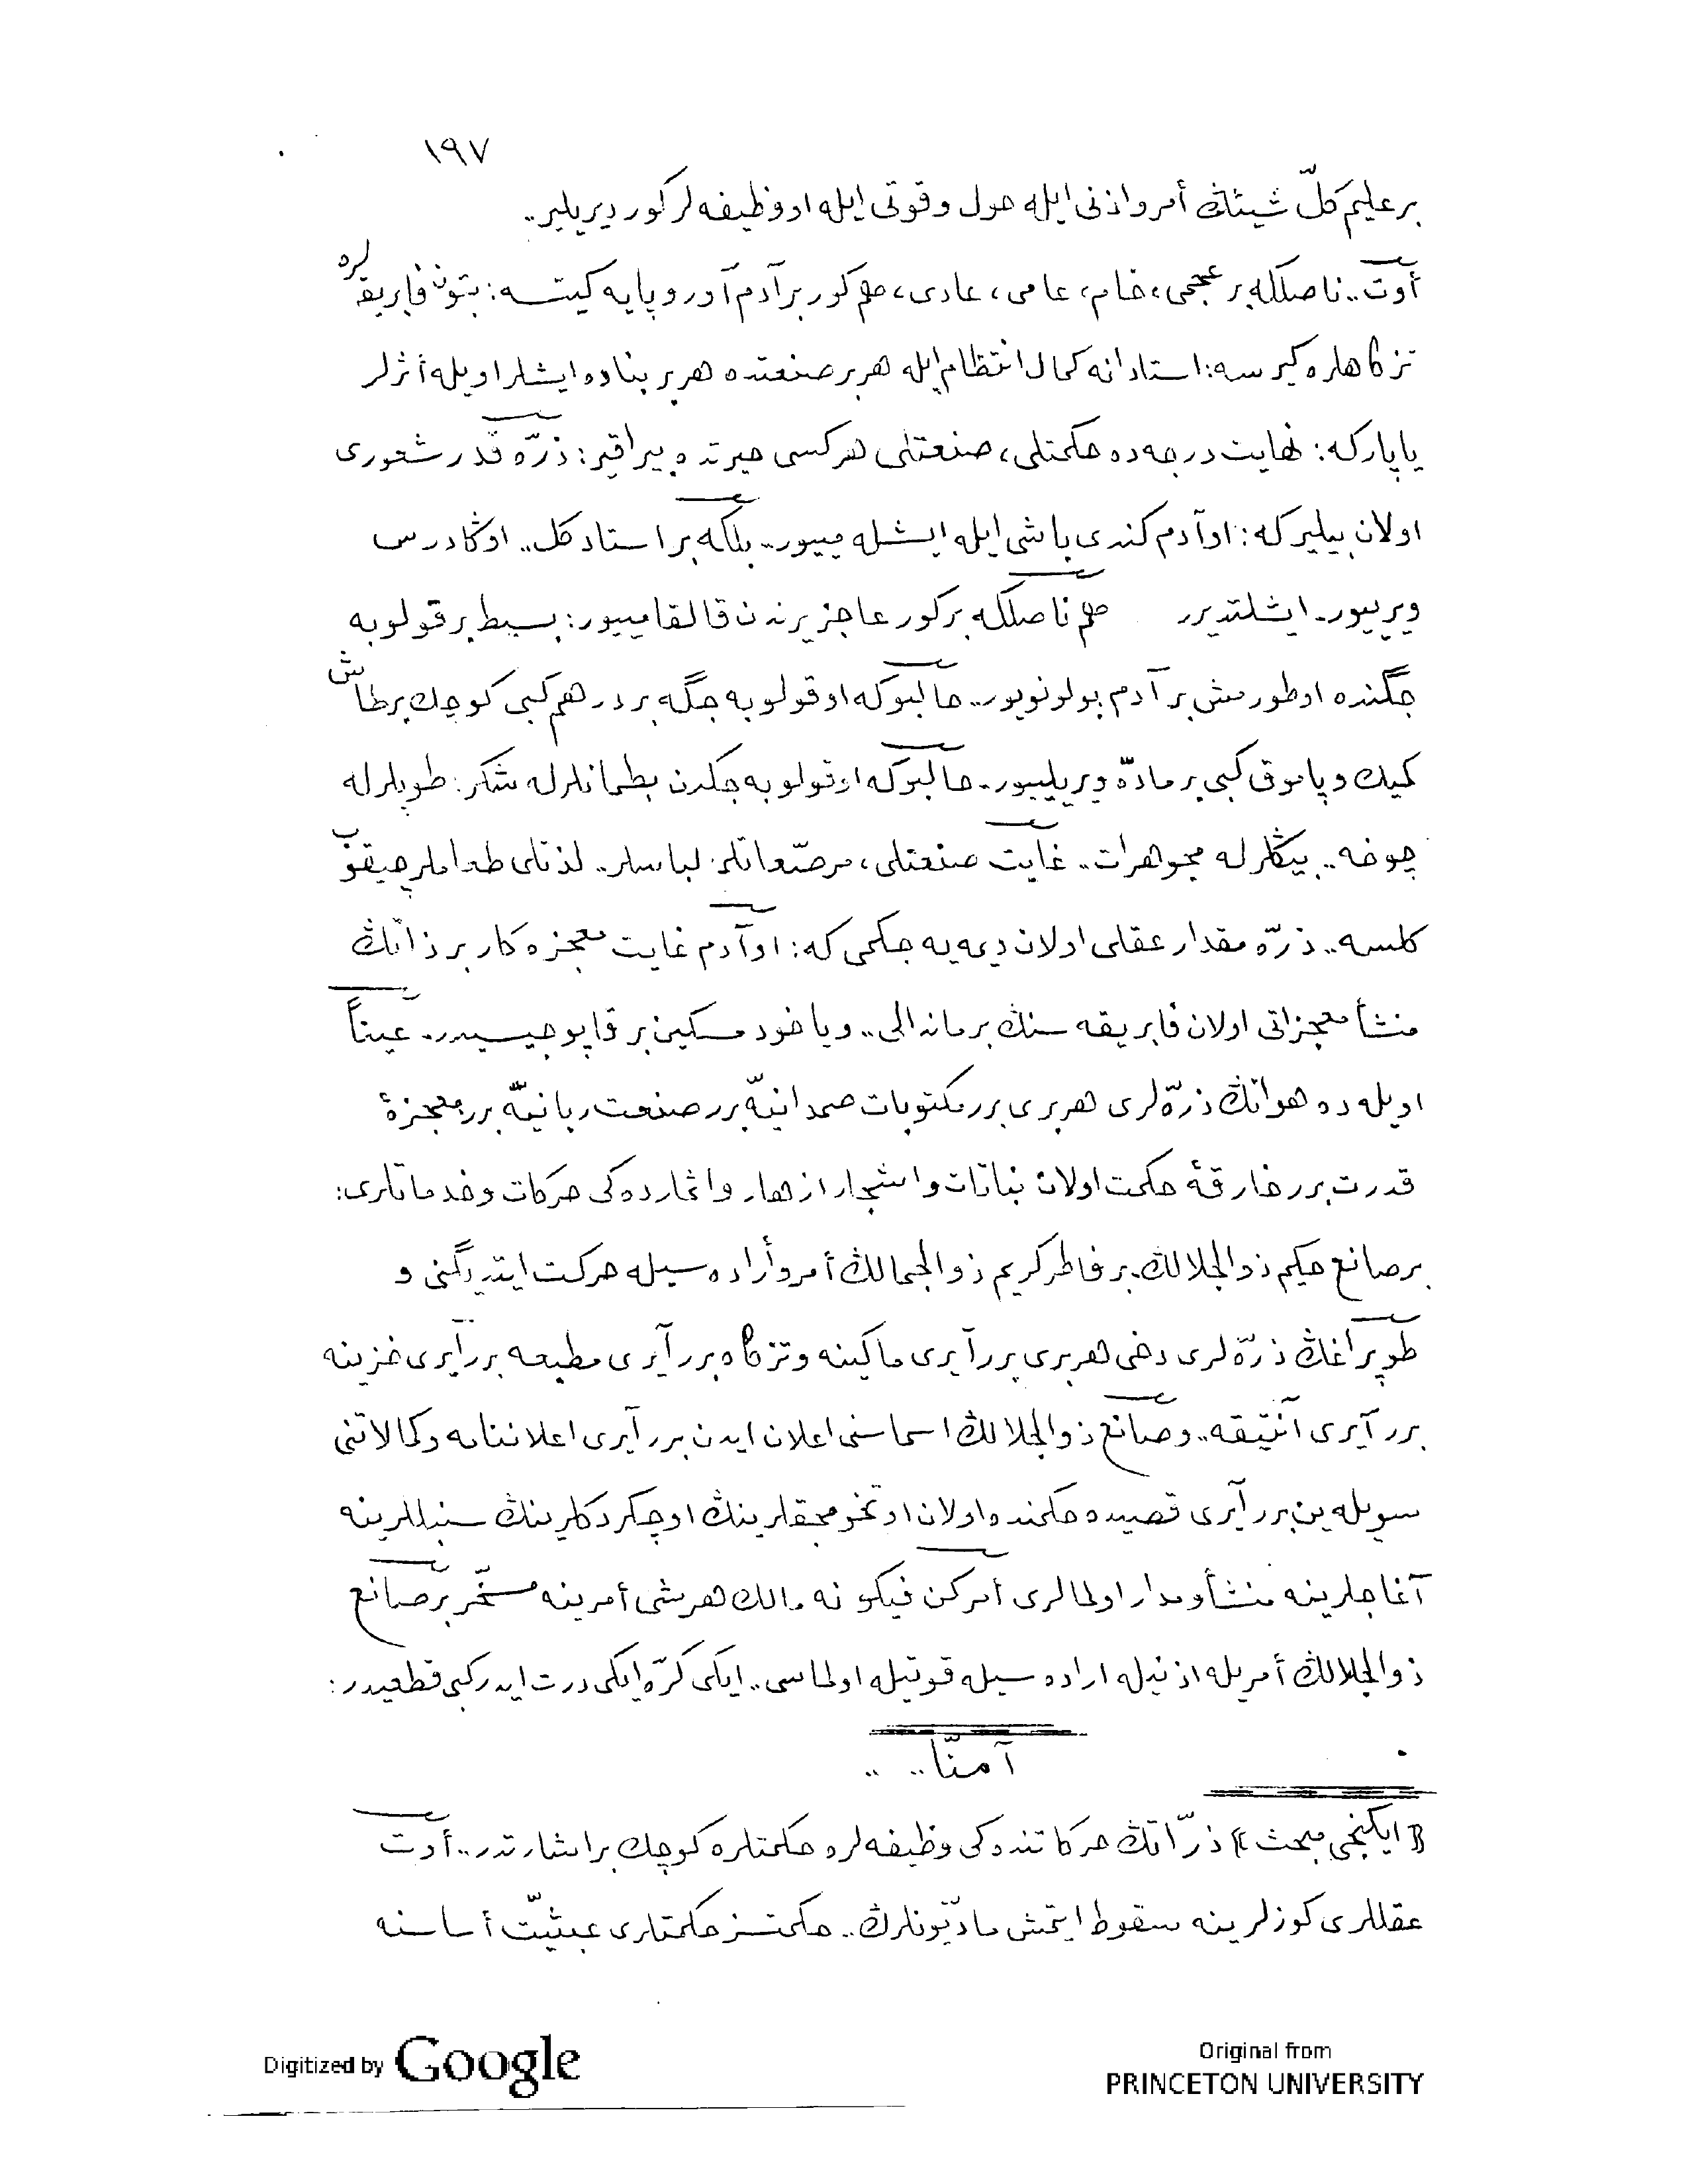 ١٩٧
بر عليم كلّ شيئڭ أمر و اذنى ايله حول و قوتى ايله او وظيفه لر كورديريلير..
أوت.. ناصلكه بر عجمى، خام، عامى، عادى، هم كور بر آدم آوروپايه كيتسه: بتون فابريقه لره
تزكاهلره كيرسه: استادانه كمال انتظام ايله هر بر صنعتده هر بر بناده ايشلر اويله أثرلر
ياپاركه: نهايت درجه ده حكمتلى، صنعتلى هركسى حيرتده بيراقير: ذرّه قدر شعورى
اولان بيليركه: او آدم كندى باشى ايله ايشله مييور.. بلكه بر استاد كل.. اوڭا درس
ويرييور. ايشلتديرر هم ناصلكه بر كور عاجز يرندن قالقامييور: بسيط بر قولوبه
جگنده اوطورمش بر آدم بولونويور.. حالبوكه او قولوبه جگه بر درهم كبى كوچك بر طاش
كميك و پاموق كبى بر مادّه ويريلييور.. حالبوكه او قولوبه جكدن بطمانلرله شكر: طوپلرله
چوخه.. بيڭلرله مجوهرات.. غايت صنعتلى، مرصّعاتلى لباسلر.. لذتلى طعاملر چيقوب
كلسه.. ذرّه مقدار عقلى اولان ديمه يه جكمى كه: او آدم غايت معجزه كار بر ذاتڭ
منشأ معجزاتى اولان فابريقه سنڭ بر ماندالى.. وياخود مسكين بر قاپوجيسيدر. عيناً
اويله ده هوانڭ ذرّه لرى هر برى برر مكتوبات صمدانيّه برر صنعت ربانيّه برر معجزۀ
قدرت برر خارقۀ حكمت اولان نباتات و اشجار ازهار و اثمارده كى حركات و خدماتلرى:
بر صانع حكيم ذوالجلالڭ. بر فاطر كريم ذوالجمالڭ أمر و أراده سيله حركت ايتديگنى و
طوپراغڭ ذرّه لرى دخى هر برى برر آيرى ماكينه و تزكاه برر آيرى مطبعه برر آيرى خزينه
برر آيرى آنتيقه.. و صانع ذوالجلالڭ اسماسنى اعلان ايدن برر آيرى اعلاننامه و كمالاتنى
سويله ين برر آيرى قصيده حكمنده اولان او تخومجقلرينڭ او چكردكلرينڭ سنبللرينه
آغاجلرينه منشأ و مدار اولمالرى أمر كن فيكونه مالك هر شى أمرينه مسخّر بر صانع
ذوالجلالڭ أمريله اذنيله اراده سيله قوتيله اولماسى.. ايكى كرّه ايكى درت ايدر كبى قطعيدر:
آمنّا.. ..
﴿ ايكنجى مبحث ﴾ ذرّاتڭ حركاتنده كى وظيفه لره حكمتلره كوچك بر اشارتدر.. أوت
عقللرى كوزلرينه سقوط ايتمش ماديّونلرڭ.. حكمتسز حكمتلرى عبثيّت أساسنه
Digitized by Google
Original from
PRINCETON UNIVERSITY